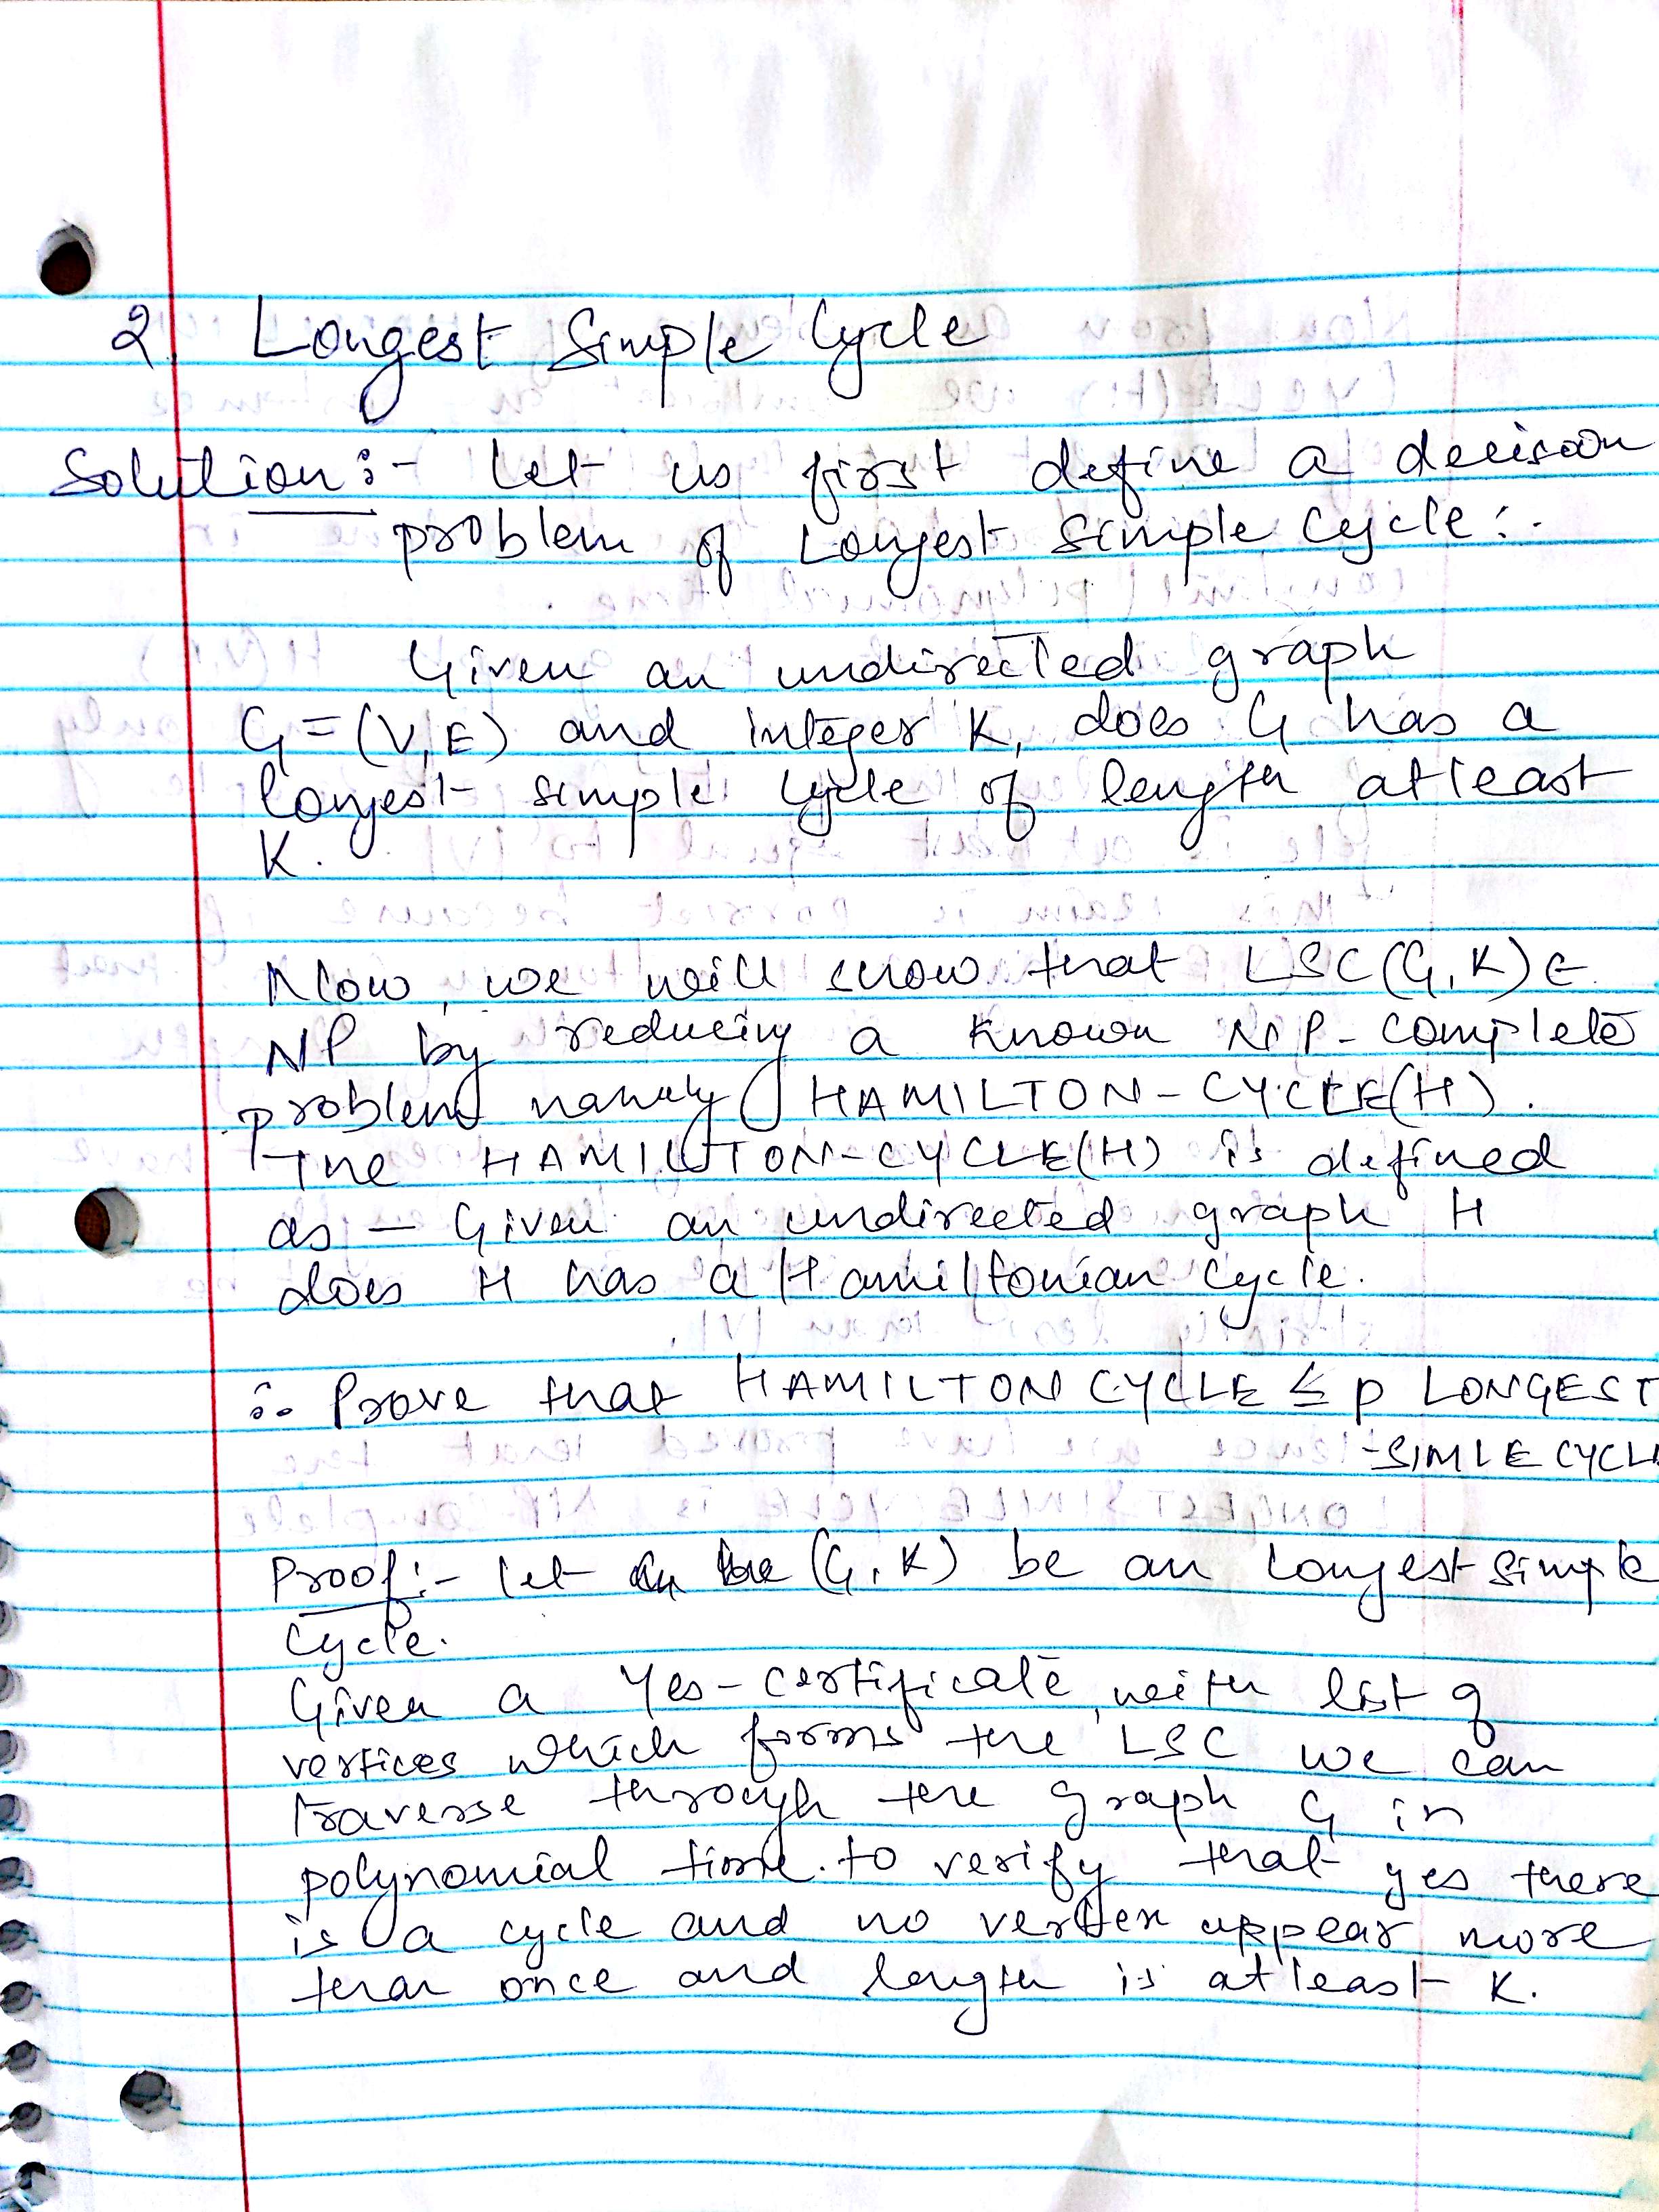 2. Longest Simple Cycle
Solution :- Let us first define a decision
problem of Longest Simple Cycle :-
Given an undirected graph
G = (V, E) and integer K, does G has a
longest simple cycle of length atleast
K.
Now, we will show that LSC(G, K) ∈
NP by reducing a known NP-complete
problem namely HAMILTON-CYCLE(H).
The HAMILTON-CYCLE(H) is defined
as – Given an undirected graph H
does H has a Hamiltonian cycle.
∴ Prove that HAMILTON CYCLE ≤ p LONGEST
-SIMLE CYCLE
Proof :- Let (G, K) be an Longest Simple
Cycle.
Given a Yes-certificate with list of
vertices which forms the LSC we can
traverse through the graph G in
polynomial time. to verify that yes there
is a cycle and no vertex appear more
than once and length is atleast K.